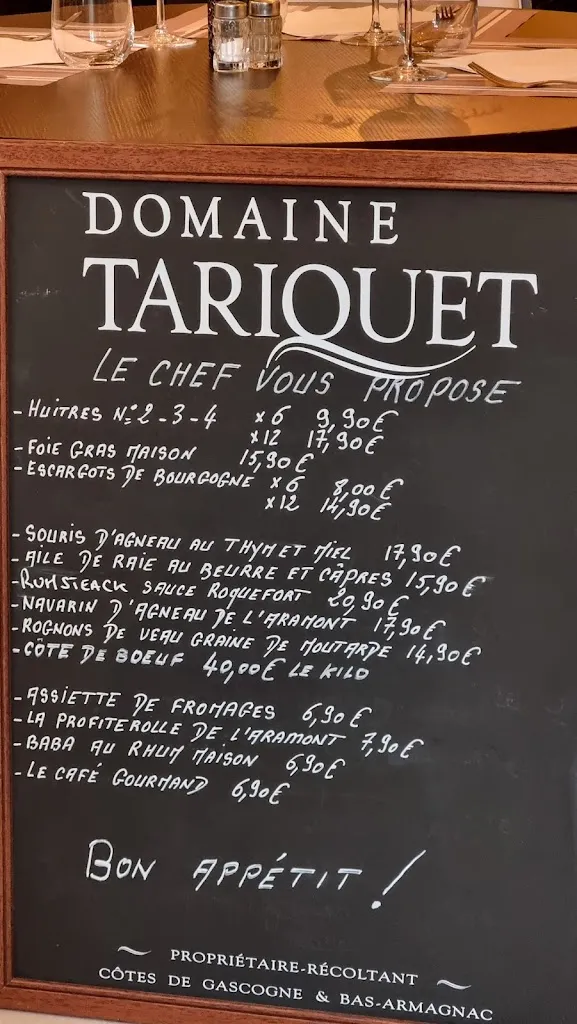 DOMAINE
TARIQUET
LE CHEF VOUS PROPOSE
- HUITRES N°2-3-4 x6 9,90€
x12 17,90€
- FOIE GRAS MAISON 15,90€
- ESCARGOTS DE BOURGOGNE x6 8,00€
x12 14,90€
- SOURIS D'AGNEAU AU THYM ET MIEL 17,90€
- AILE DE RAIE AU BEURRE ET CÂPRES 15,90€
- RUMSTEACK SAUCE ROQUEFORT 20,90€
- NAVARIN D'AGNEAU DE L'ARAMONT 17,90€
- ROGNONS DE VEAU GRAINE DE MOUTARDE 14,90€
- CÔTE DE BOEUF 40,00€ LE KILO
- ASSIETTE DE FROMAGES 6,90€
- LA PROFITEROLLE DE L'ARAMONT 7,90€
- BABA AU RHUM MAISON 6,90€
- LE CAFÉ GOURMAND 6,90€
BON APPÉTIT !
PROPRIÉTAIRE-RÉCOLTANT
CÔTES DE GASCOGNE & BAS-ARMAGNAC